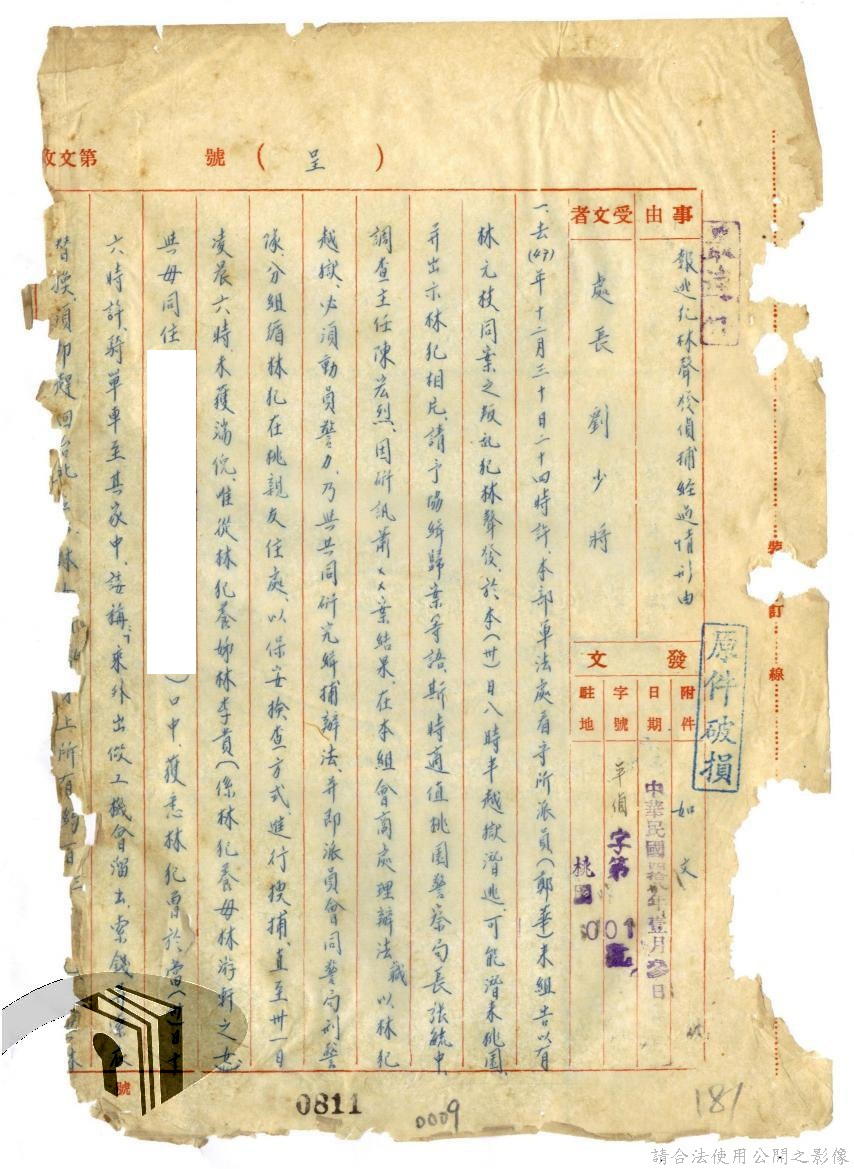 第文收 號（呈）
事由
報逃犯林聲發偵捕經過情形由
受文者
處長劉少將
發文
附件
如文
日期
中華民國 年壹月 日
字號
字第001
駐地
桃園
一、去(47)年十二月三十日二十四時許、本部軍法處看守所派員(鄭華)來組告以有
林元枝同案之叛乱犯林聲發、於本(卅)日八時半越獄潛逃、可能潛來桃園、
并出示林犯相片、請予協緝歸案等語、斯時適值桃園警察局長張毓中、
調查主任陳宏烈、因研訊蕭××案結果、在本組會商處理辦法、職以林犯
越獄、必須動員警力、乃與共同研究緝捕辦法、并即派員會同警局刑警
隊、分組循林犯在桃親友住處、以保安檢查方式、進行搜捕、直至卅一日
凌晨六時、未獲端倪、惟從林犯養姊林李貴(係林犯養母林游軒之女
與母同住
)口中、獲悉林犯曾於當(卅)日十
六時許、騎單車至其家中、詭稱「乘外出做工機會溜出、索錢
替換、須即趕回台北
上所有約百
裝訂線
原件破損
號
0811
0009
181
請合法使用公開之影像